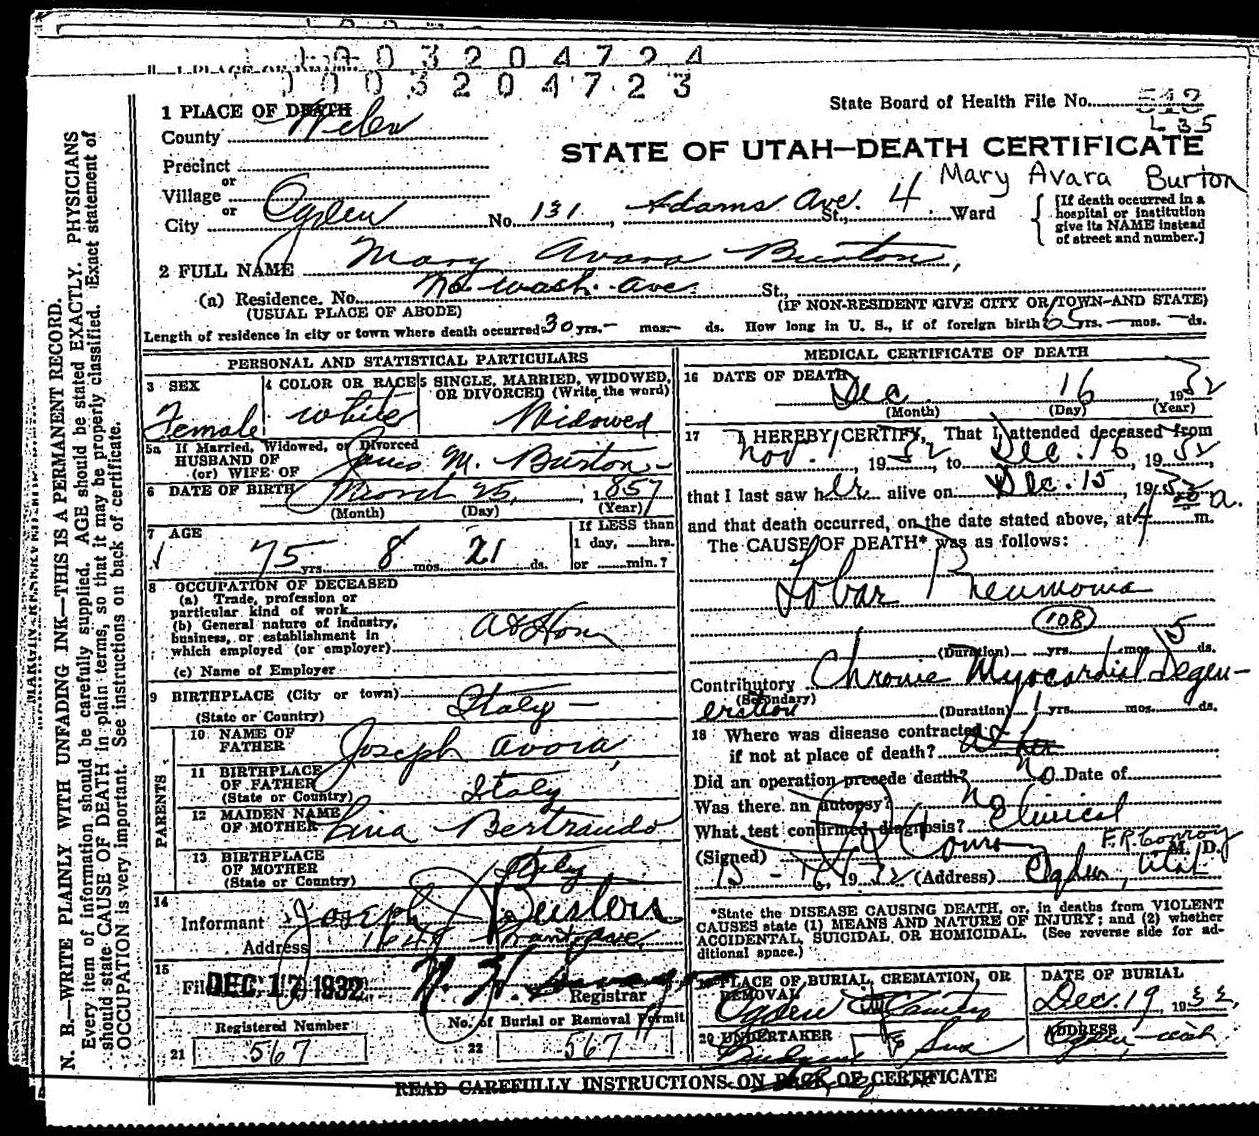 1003204724
1003204723
1 PLACE OF DEATH
County Weber
State Board of Health File No. 635
STATE OF UTAH—DEATH CERTIFICATE
Mary Avara Burton
Precinct
or
Village
or
City Ogden No. 131, Adams Ave. St., 4 Ward
[If death occurred in a hospital or institution give its NAME instead of street and number.]
2 FULL NAME Mary Avara Burton,
(a) Residence. No. No. Wash. Ave. St.,
(USUAL PLACE OF ABODE) (IF NON-RESIDENT GIVE CITY OR TOWN AND STATE)
Length of residence in city or town where death occurred 30 yrs. - mos. - ds. How long in U. S., if of foreign birth 65 yrs. - mos. - ds.
PERSONAL AND STATISTICAL PARTICULARS
3 SEX Female
4 COLOR OR RACE White
5 SINGLE, MARRIED, WIDOWED, OR DIVORCED (Write the word) Widowed
5a If Married, Widowed, or Divorced
HUSBAND OF
(or) WIFE OF M. Burton
6 DATE OF BIRTH March 25, 1857
(Month) (Day) (Year)
7 AGE 75 yrs 8 mos. 21 ds.
If LESS than
1 day, hrs.
or min.?
8 OCCUPATION OF DECEASED
(a) Trade, profession or
particular kind of work
(b) General nature of industry,
business, or establishment in
which employed (or employer) At Home
(c) Name of Employer
9 BIRTHPLACE (City or town) Italy
(State or Country)
PARENTS
10 NAME OF FATHER Joseph Avara,
11 BIRTHPLACE OF FATHER Italy
(State or Country)
12 MAIDEN NAME OF MOTHER Lina Bertrando
13 BIRTHPLACE OF MOTHER Italy
(State or Country)
14
Informant Joseph J Burton
Address Ave.
15
Filed DEC 17 1932
Registrar
Registered Number
21 567
No. of Burial or Removal Permit
22 567
MEDICAL CERTIFICATE OF DEATH
16 DATE OF DEATH Dec 16 1932
(Month) (Day) (Year)
17 I HEREBY CERTIFY, That I attended deceased from
Nov. 1, 1932, to Dec. 16, 1932,
that I last saw her alive on Dec. 15, 1932
and that death occurred, on the date stated above, at 4 a. m.
The CAUSE OF DEATH* was as follows:
Lobar Pneumonia
108
(Duration) yrs. mos. 15 ds.
Contributory Chronic Myocardial Degen-
(Secondary)
eration (Duration) 1 yrs. mos. ds.
18 Where was disease contracted
if not at place of death?
Did an operation precede death? no Date of
Was there an autopsy? No
What test confirmed diagnosis? Clinical
(Signed) Conroy F.R. Conroy M. D.
1932 (Address) Ogden, Utah
*State the DISEASE CAUSING DEATH, or, in deaths from VIOLENT
CAUSES state (1) MEANS AND NATURE OF INJURY; and (2) whether
ACCIDENTAL, SUICIDAL, OR HOMICIDAL. (See reverse side for ad-
ditional space.)
19 PLACE OF BURIAL, CREMATION, OR REMOVAL
Ogden City
DATE OF BURIAL
Dec. 19, 1932
20 UNDERTAKER
& Sons
ADDRESS
Ogden, Utah
READ CAREFULLY INSTRUCTIONS ON BACK OF CERTIFICATE
N. B.—WRITE PLAINLY WITH UNFADING INK—THIS IS A PERMANENT RECORD.
Every item of information should be carefully supplied. AGE should be stated EXACTLY. PHYSICIANS
should state CAUSE OF DEATH in plain terms, so that it may be properly classified. Exact statement of
OCCUPATION is very important. See instructions on back of certificate.